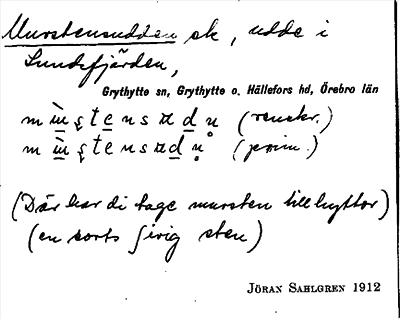 Murstensudden sk, udde i
Sundsfjärden,
Grythytte sn, Grythytte o. Hällefors hd, Örebro län
(renskr.)
(prim.)
(Där har di tage mursten till hyttor)
(en sorts sten)
JÖRAN SAHLGREN 1912